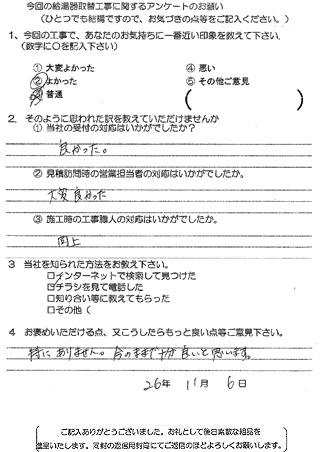 今回の給湯器取替工事に関するアンケートのお願い
(ひとつでも結構ですので、お気づきの点等をご記入ください。)
1、今回の工事で、あなたのお気持ちに一番近い印象を教えて下さい。
(数字に○を記入下さい)
① 大変よかった ④ 悪い
② よかった ⑤ そのほかご意見
③ 普通 ( )
2. そのように思われた訳を教えていただけませんか
① 当社の受付の対応はいかがでしたか?
良かった。
② 見積訪問時の営業担当者の対応はいかがでしたか。
大変良かった
③ 施工時の工事職人の対応はいかがでしたか。
同上
3 当社を知られた方法をお教え下さい。
□インターネットで検索して見つけた
□チラシを見て電話した
□知り合い等に教えてもらった
□その他(
4 お褒めいただける点、又こうしたらもっと良い点等ご意見下さい。
特にありません。今のままで十分良いと思います。
26年 11月 6日
ご記入ありがとうございました。お礼として後日素敵な粗品を
進呈いたします。同封の返信用封筒にてご返信のほどよろしくお願いします。